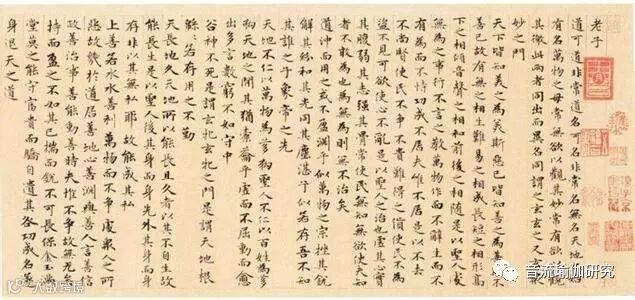 老子
道可道非常道名可名非常名無名天地之始
有名萬物之母常無欲以觀其妙常有欲以觀
其徼此兩者同出而異名同謂之玄玄之又玄衆
妙之門
天下皆知美之為美斯惡已皆知善之為善斯不
善已故有無之相生難易之相成長短之相形高
下之相傾音聲之相和前後之相隨是以聖人處
無為之事行不言之教萬物作而不辭生而不
有為而不恃功成不居夫惟不居是以不去
不尚賢使民不爭不貴難得之貨使民不為
盜不見可欲使心不亂是以聖人之治也虛其心實
其腹弱其志強其骨常使民無知無欲使夫知
者不敢為也為無為則無不治矣
道沖而用之或不盈淵乎似萬物之宗挫其銳
解其紛和其光同其塵湛兮似若存吾不知
其誰之子象帝之先
天地不仁以萬物為芻狗聖人不仁以百姓為芻
狗天地之間其猶橐籥乎虛而不屈動而愈
出多言數窮不如守中
谷神不死是謂玄牝玄牝之門是謂天地根
綿綿若存用之不勤
天長地久天地所以能長且久者以其不自生故
能長生是以聖人後其身而身先外其身而身
存非以其無私耶故能成其私
上善若水水善利萬物而不爭處衆人之所
惡故幾於道居善地心善淵與善人言善信
政善治事善能動善時夫惟不爭故無尤矣
持而盈之不如其已揣而銳不可長保金玉滿
堂莫之能守富貴而驕自遺其咎功成名遂
身退天之道
大数跨境
音流瑜伽研究